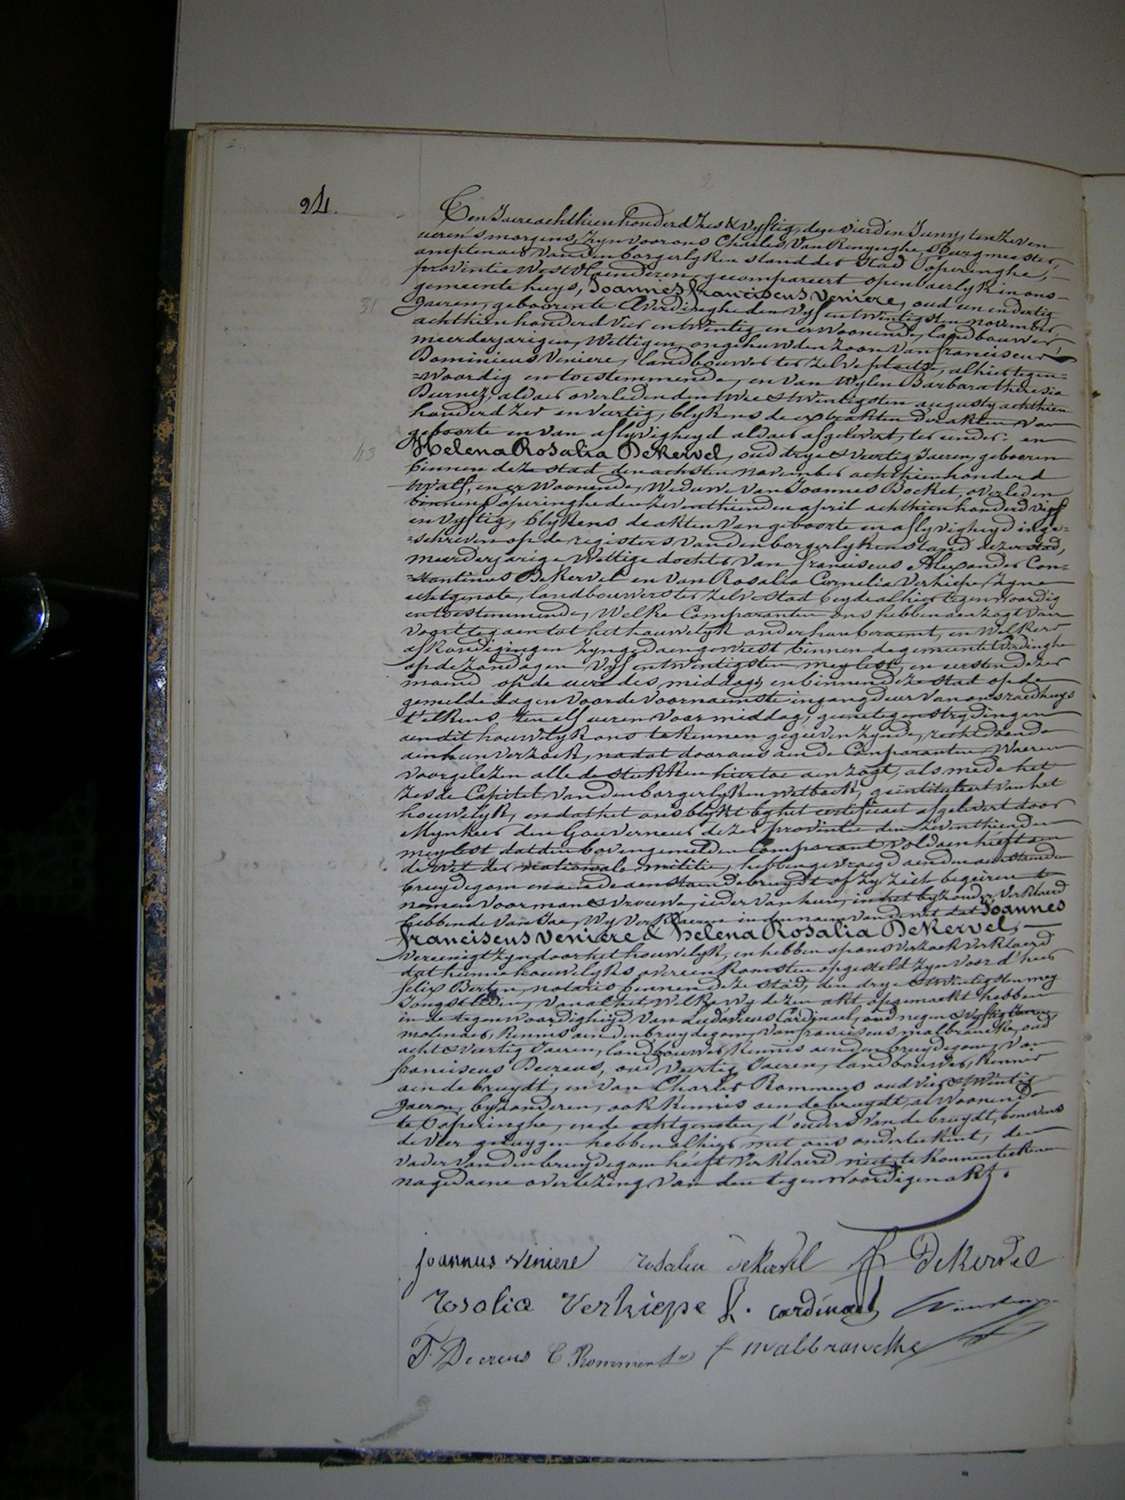 2
24.
Ten Jaere achthien honderd zes & vyftig, dage vierden Juny, ten zeven
ueren 's morgens, zyn voor ons Charles Van Renynghe, Burgmeester,
amptenaer van den borgerlyken stand der stad Poperinghe,
provintie West Vlaenderen, gecompareert openbaerlyk in ons
gemeente huys, Joannes franciscus Veniere, oud een en dertig
31
Jaeren, geboren te Elverdinghe den vyf en twintigsten november
achthien honderd vier en twintig en er woonende, landbouwer,
meerderjarigen, wettigen, ongehuwden zoon van franciscus
Dominicus Veniere, landbouwer ter zelve plaetse, alhier tegen=
=woordig en toestemmende, en van wylen Barbara theresia
aldaer overleden den twee & twintigsten augusty achthien
honderd zes en veertig, blykens de extrakten der akten van
geboorte en van aflyvigheyd aldaer afgelevert, ter eender: en
43
Helena Rosalia DeKervel, oud drye & veertig Jaeren, geboren
binnen deze stad den achsten november achthien honderd
twalf, en er woonende, Weduwe van Joannes Bocket, overleden
binnen Poperinghe den zeventhienden april achthien honderd vijf
en vyftig, blykens de akten van geboorte en aflyvigheyd inge=
=schreven op de registers van den borgerlyken stand dezer stad,
meerderjarige wettige dochter van franciscus Alexander Con=
=stantinus DeKervel en van Rosalia Cornelia Verhiepe, zyne
echtgenote, landbouwers ter zelve stad beyde alhier tegenwoordig
en toestemmende, Welke Comparanten ons hebben aenzogt van
voort te gaen tot het houwelyk onder hun beraemt, en welkers
afkondigingen zyn gedaen geweest binnen de gemeente Elverdinghe
op de zondagen vyf en twintigsten mey lest, en eersten dezer
maend op de uere des middags en binnen deze stad op de
gemelde dagen voor de voornaemste ingang deur van ons raedhuys
t'elkens ten elf ueren voormiddag, geene tegenstrydingen
aen dit houwelyk ons te kennen gegeven zynde, recht doende
aen hun verzoek, nadat door ons aen de Comparanten waeren
voorgelezen alle de stukken hier toe aenzogt, als mede het
zesde Capitel van den borgerlyken wetboek, geintituleert van het
houwelyk, en dat het ons blykt by het certificaet afgelevert door
Mynheer den Gouverneur dezer provintie den zeventhienden
mey lest dat den bovengemelden Comparant voldaen heeft aen
de wet der nationale militie, hebben gevraegd aen den aenstaenden
bruydegom en aen de aenstaende bruydt of zy zich begeiren te
nemen voor man & vrouwe, ieder van hun in het byzonder verklaerd
hebbende van Jae, Wy Verklaeren in den naem van de wet dat Joannes
franciscus Veniere & Helena Rosalia DeKervel,
vereenigt zyn door het houwelyk, en hebben op ons verzoek verklaerd
dat hunne houwelyks overeenkomsten opgesteld zyn voor d'heer
felix Berten, notaris binnen deze stad, den drye & twintigsten mey
Jongstleden, van al het welke wy dezen akt opgemaekt hebben
in de tegenwoordigheyd van Ludovicus Cardinael, oud negen & vyftig Jaeren,
molenaer, Kennis aen den bruydegom, van franciscus malbrancke, oud
acht & veertig Jaeren, landbouwer, Kennis aen den bruydegom, van
franciscus Decreus, oud veertig Jaeren, landbouwer, Kennis
aen de bruydt, en van Charles Rommens oud vier & twintig
Jaeren, byzonderen, ook Kennis aen de bruydt, al woonende
te Poperinghe, en de echtgenoten, d'ouders van de bruydt, benevens
de vier getuygen hebben alhier met ons onderteekent, den
vader van den bruydegom heeft verklaerd niet te konnen teekenen
na gedaene overlezing van den tegenwoordigen akt.
joannus veniere rosalia DeKervel DeKervel
rosalia Verhiepe L. cardinael
F. Decreus C Rommens f malbrancke